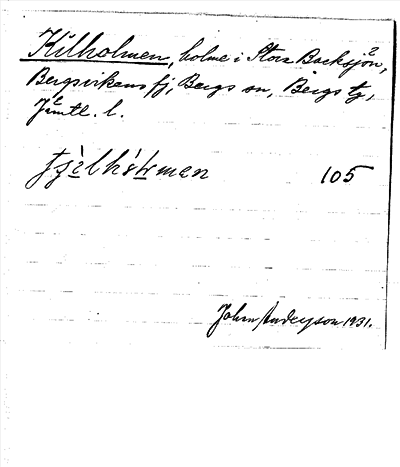 Kilholmen, holme i Stora Backsjön,
Bergsvikens fj, Bergs sn, Bergs tg,
Jämtl. l.
105
John Anderson 1931.